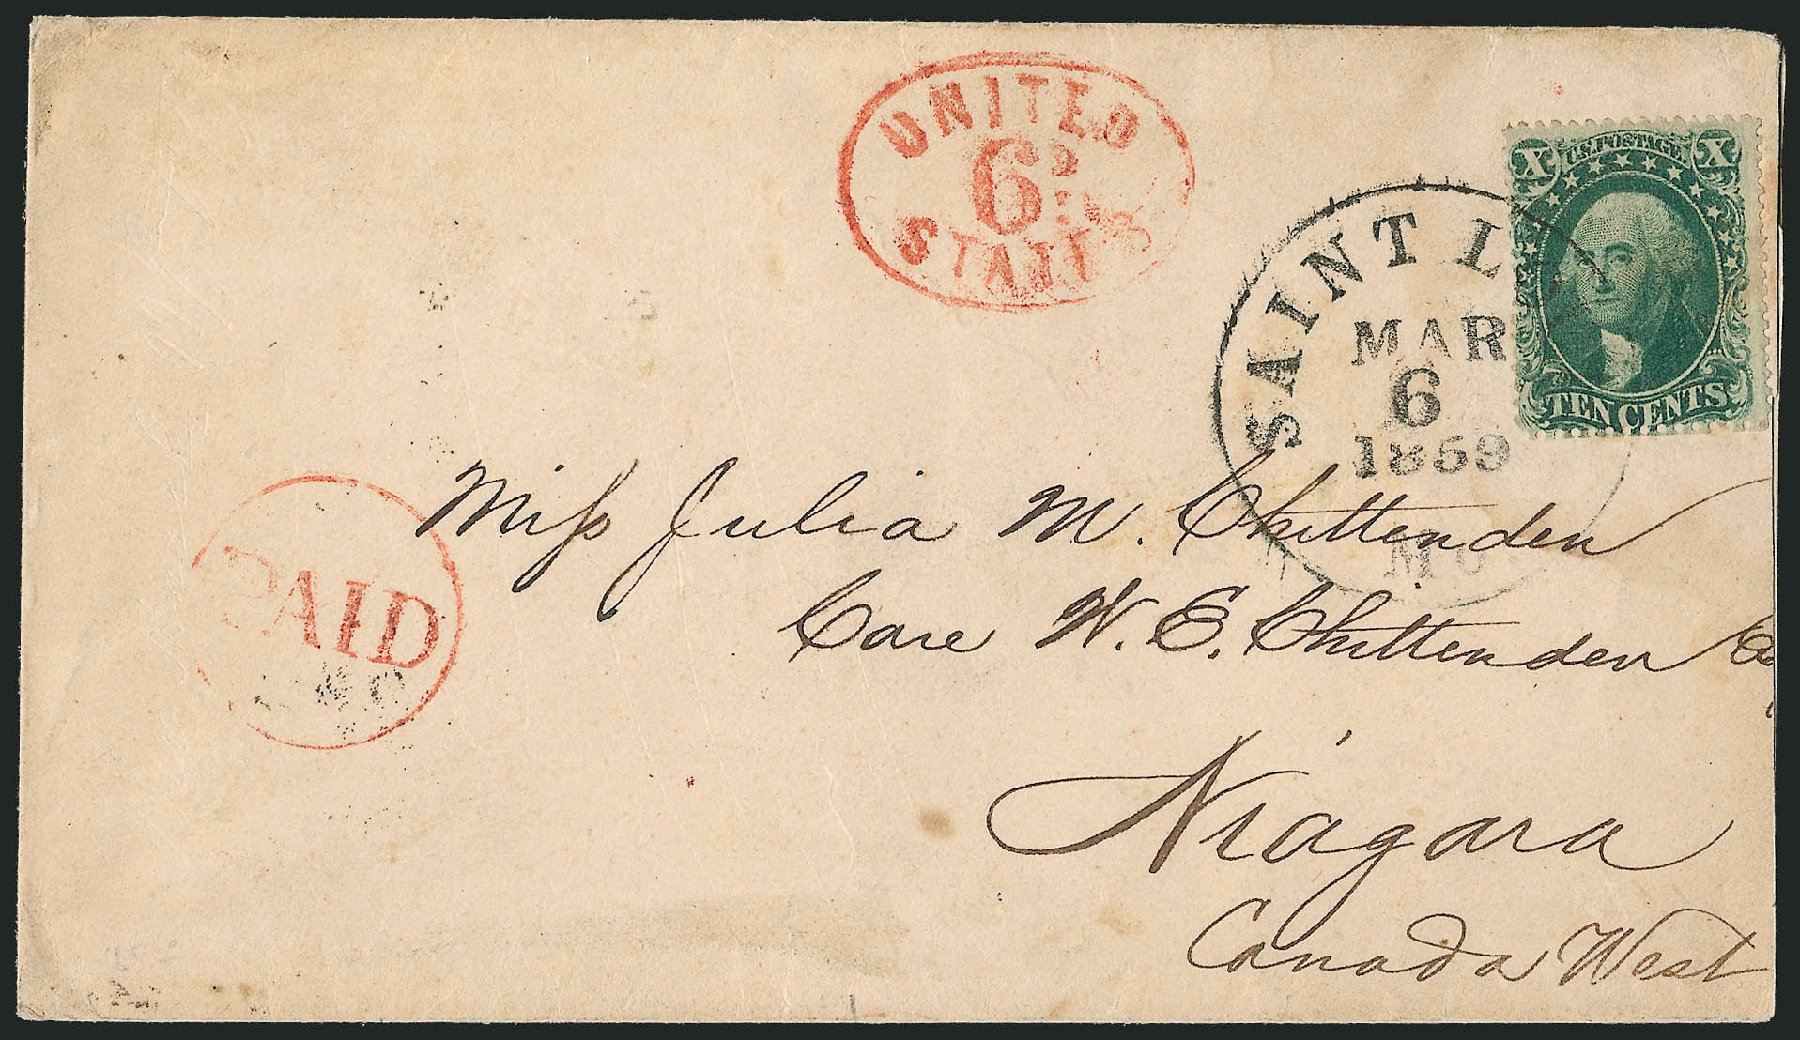 UNITED
6D
STATES
X U.S. POSTAGE X
TEN CENTS
SAINT L
MAR
6
1859
MO
PAID
Miss Julia M. Chittenden
Care W. E. Chittenden
Niagara
Canada West